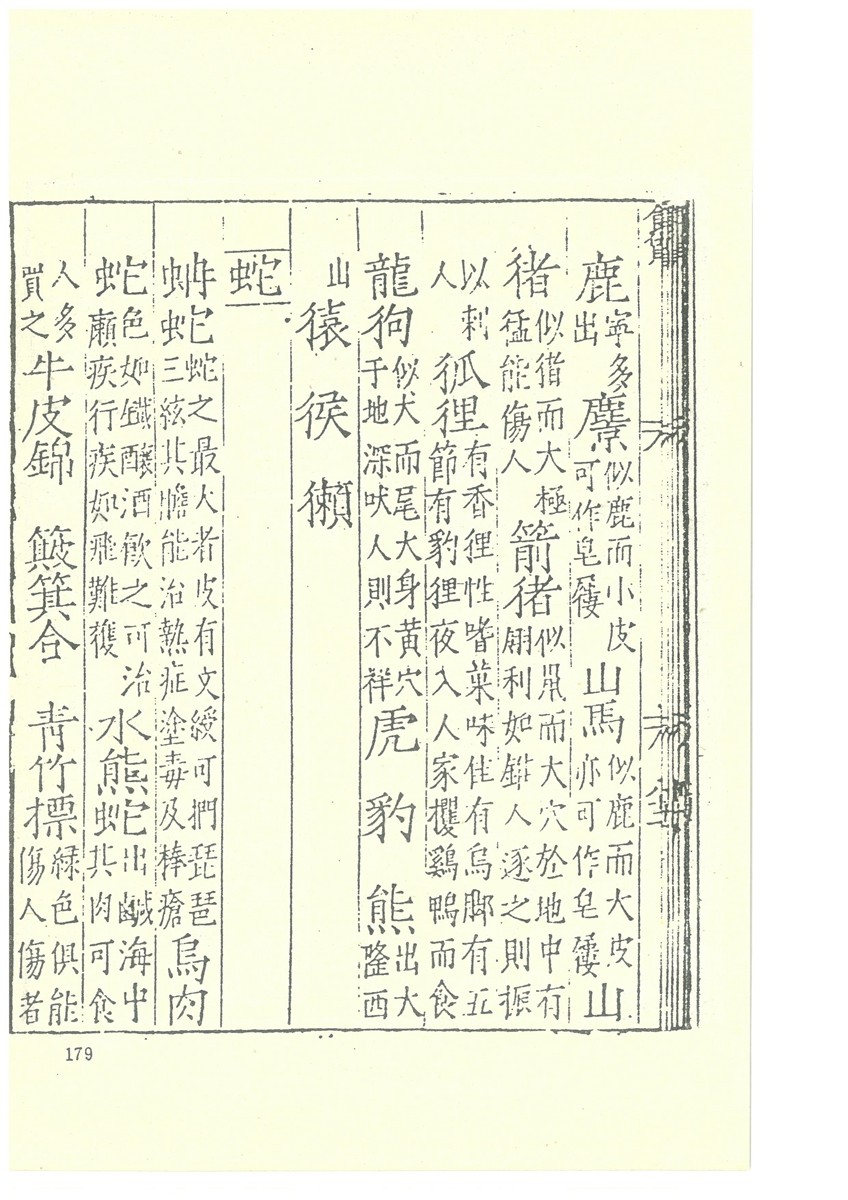 食貨
鹿寧多出麖似鹿而小皮可作皂山馬似鹿而大皮亦可作皂山
猪似猪而大極猛能傷人箭猪似鼠而大穴於地中有翎利如錐人逐之則振
以刺人狐狸有香狸性嗜菓味佳有烏脚有五節有豹狸夜入人家攫鷄鴨而食
龍狗似犬而尾大身黄穴于地深吠人則不祥虎豹熊出大隆西
山猿猴獺
蛇
蚺蛇蛇之最大者皮有文綬可捫琵琶三絃其膽能治熱症塗毒及棒瘡烏肉
蛇色如鐵釀酒飲之可治癩疾行疾如飛難獲水熊蛇出鹹海中蛇其肉可食
人多買之牛皮錦簸箕合青竹標緑色俱能傷人傷者
179